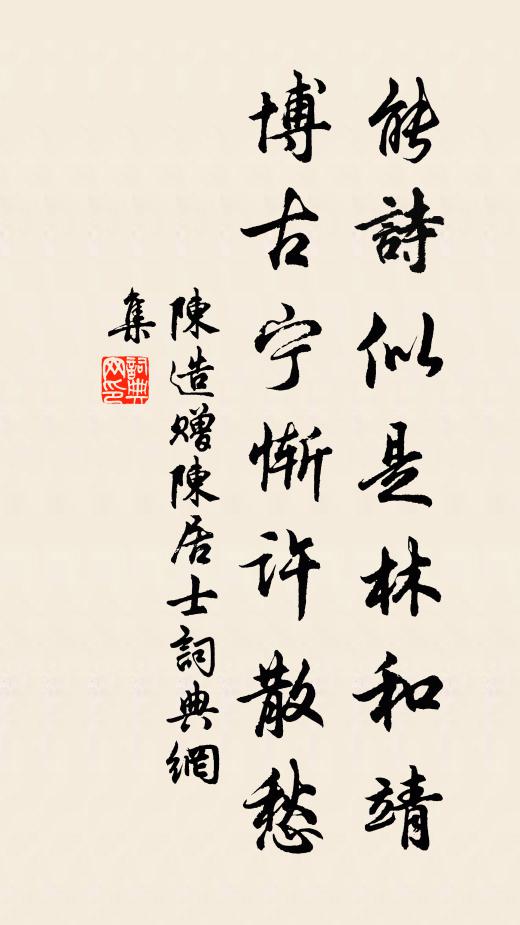 能詩似是林和靖
博古宁惭许散愁
陳造贈陳居士詞典網
集
詞典网印